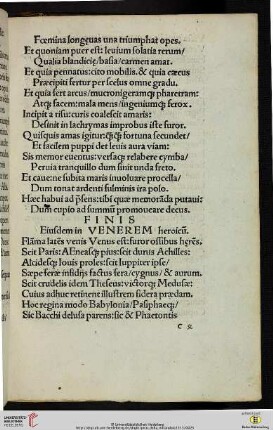 Fœmina longeuas una triumphat opes.
Et quoniam puer est: leuium solatia rerum/
Qualia blandiciæ/basia/carmen amat.
Et quia pennatus: cito mobilia. & quia cæcus
Præcipiti fertur per scelus omne gradu.
Et quia fert arcus/mucronigeramq; pharetram:
Atq; facem: mala mens/ingeniumq; ferox.
Incipit a risu: curis coalescit amaris:
Desinit in lachrymas improbus iste furor.
Quisquis amas igitur: q̃q̃ fortuna secundet/
Et facilem puppi det leuis aura uiam:
Sis memor euentus: uersaq; relabere cymba/
Peruia tranquillo dum sinit unda freto.
Et caue: ne subita maris inuoluare procella/
Dum tonat ardenti fulminis ira polo.
Hæc habui ad p̃sens: tibi quæ memorãda putaui:
Dum cupio ad summũ promoueare decus.
FINIS
Eiusdem in VENEREM heroicũ.
Flãma latẽs venis Venus est: furor ossibus hęrẽs.
Scit Paris: AEneasq; pius: scit dunis Achilles:
Alcidesq; Iouis proles: scit Iuppiter ipse/
Sæpe feræ insidijs factus fera/cygnus/& aurum.
Scit crudelis idem Theseus: victorq; Medusæ:
Cuius adhuc retinent illustrem sidera prædam.
Hoc regina modo Babylonia/Pasiphaeq;/
Sic Bacchi delusa parens: sic & Phaetontis